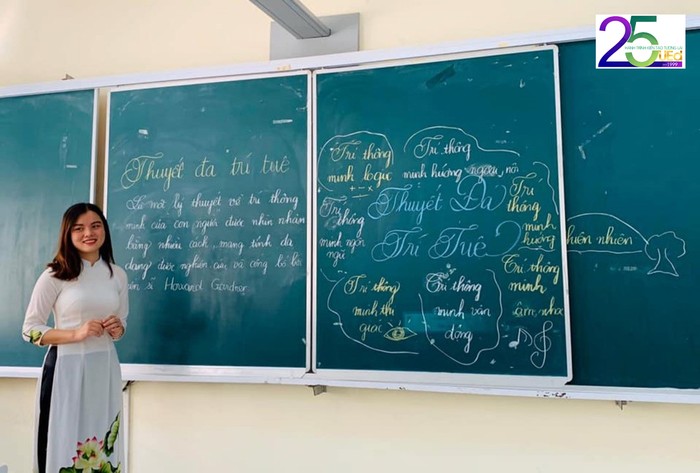 25
HÀNH TRÌNH KIẾN TẠO TƯƠNG LAI
UEd
Thuyết đa trí tuệ
Là một lý thuyết về trí thông
minh của con người được nhìn nhận
bằng nhiều cách, mang tính đa
dạng được nghiên cứu và công bố bởi
tiến sĩ Howard Gardner.
Trí thông
minh logic
+ - ÷ ×
Trí thông
minh hướng ngoại, nội
Trí
thông
minh
hướng
thiên nhiên
Trí
thông
minh ngôn
ngữ
Thuyết Đa
Trí Tuệ
Trí thông
minh thị
giác
Trí thông
minh vận
động
Trí thông
minh
âm nhạc